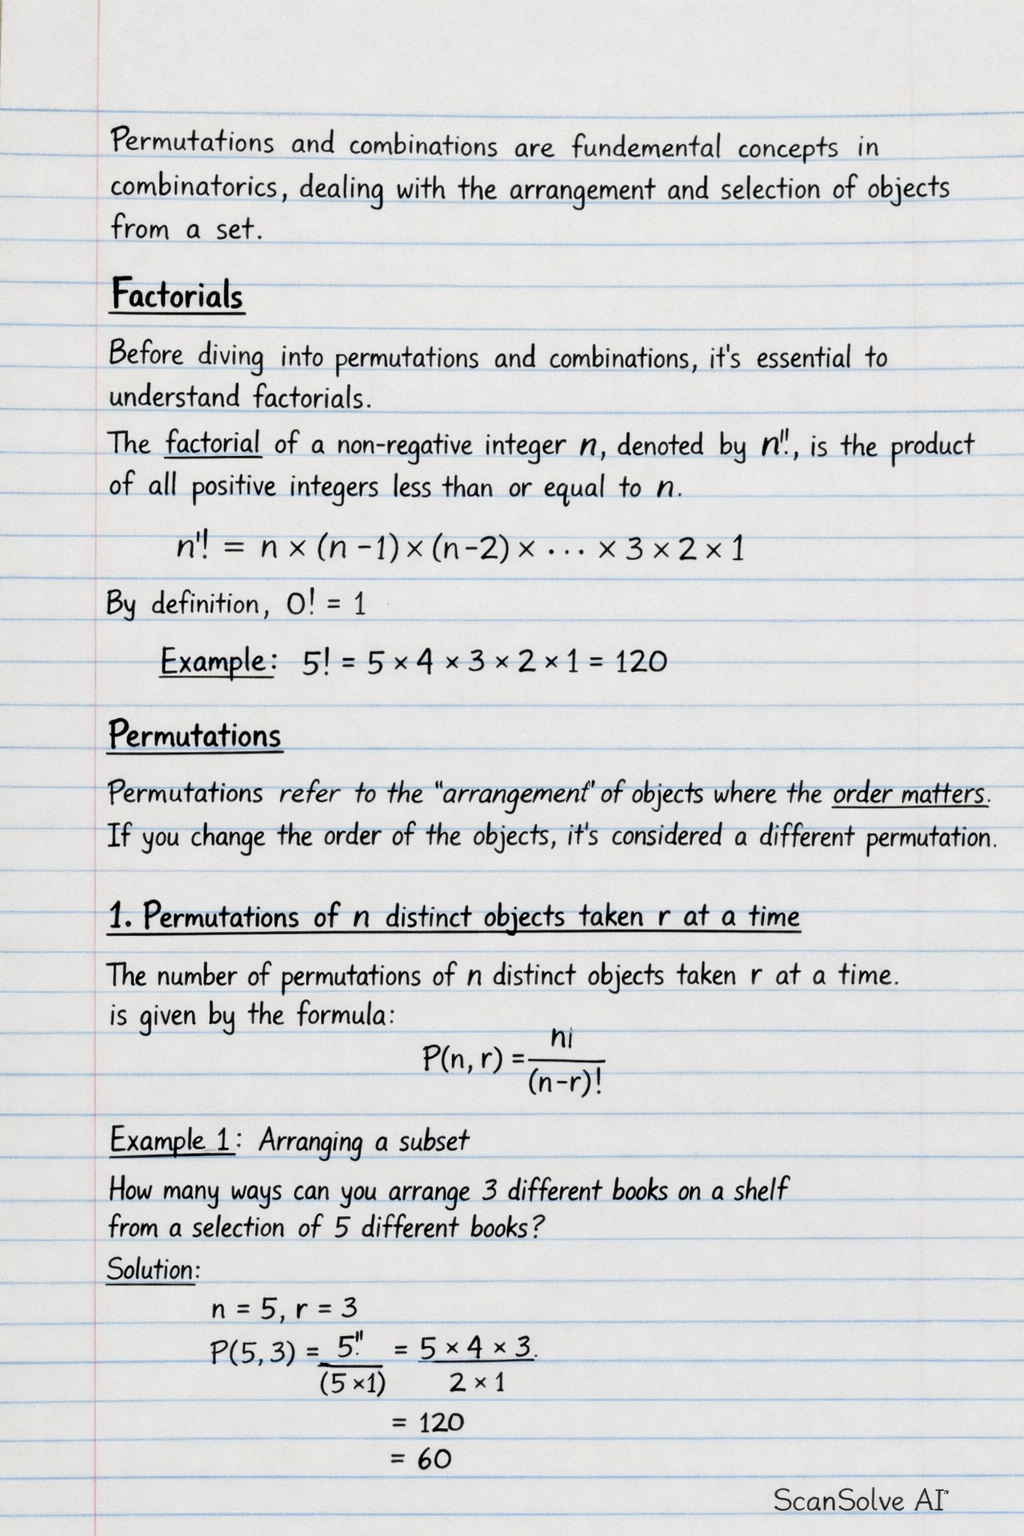 Permutations and combinations are fundemental concepts in
combinatorics, dealing with the arrangement and selection of objects
from a set.
Factorials
Before diving into permutations and combinations, it's essential to
understand factorials.
The factorial of a non-regative integer n, denoted by n"!, is the product
of all positive integers less than or equal to n.
n'! = n × (n -1) × (n-2) × ... × 3 × 2 × 1
By definition, 0! = 1
Example: 5! = 5 × 4 × 3 × 2 × 1 = 120
Permutations
Permutations refer to the "arrangement" of objects where the order matters.
If you change the order of the objects, it's considered a different permutation.
1. Permutations of n distinct objects taken r at a time
The number of permutations of n distinct objects taken r at a time.
is given by the formula:
P(n, r) = n¡ / (n-r)!
Example 1: Arranging a subset
How many ways can you arrange 3 different books on a shelf
from a selection of 5 different books?
Solution:
n = 5, r = 3
P(5, 3) = 5!" / (5 ×1) = 5 × 4 × 3. / 2 × 1
= 120
= 60
ScanSolve AI"